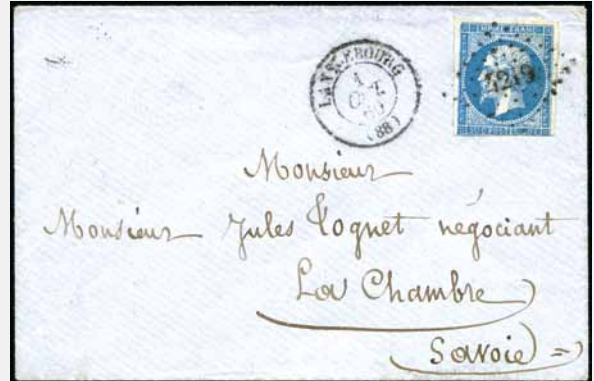 LANSLEBOURG
1
OCT.
60
(88)
EMPIRE FRANC.
4249
20 C. POSTES 20 C.
Monsieur
Monsieur Jules Tognet négociant
La Chambre
Savoie =